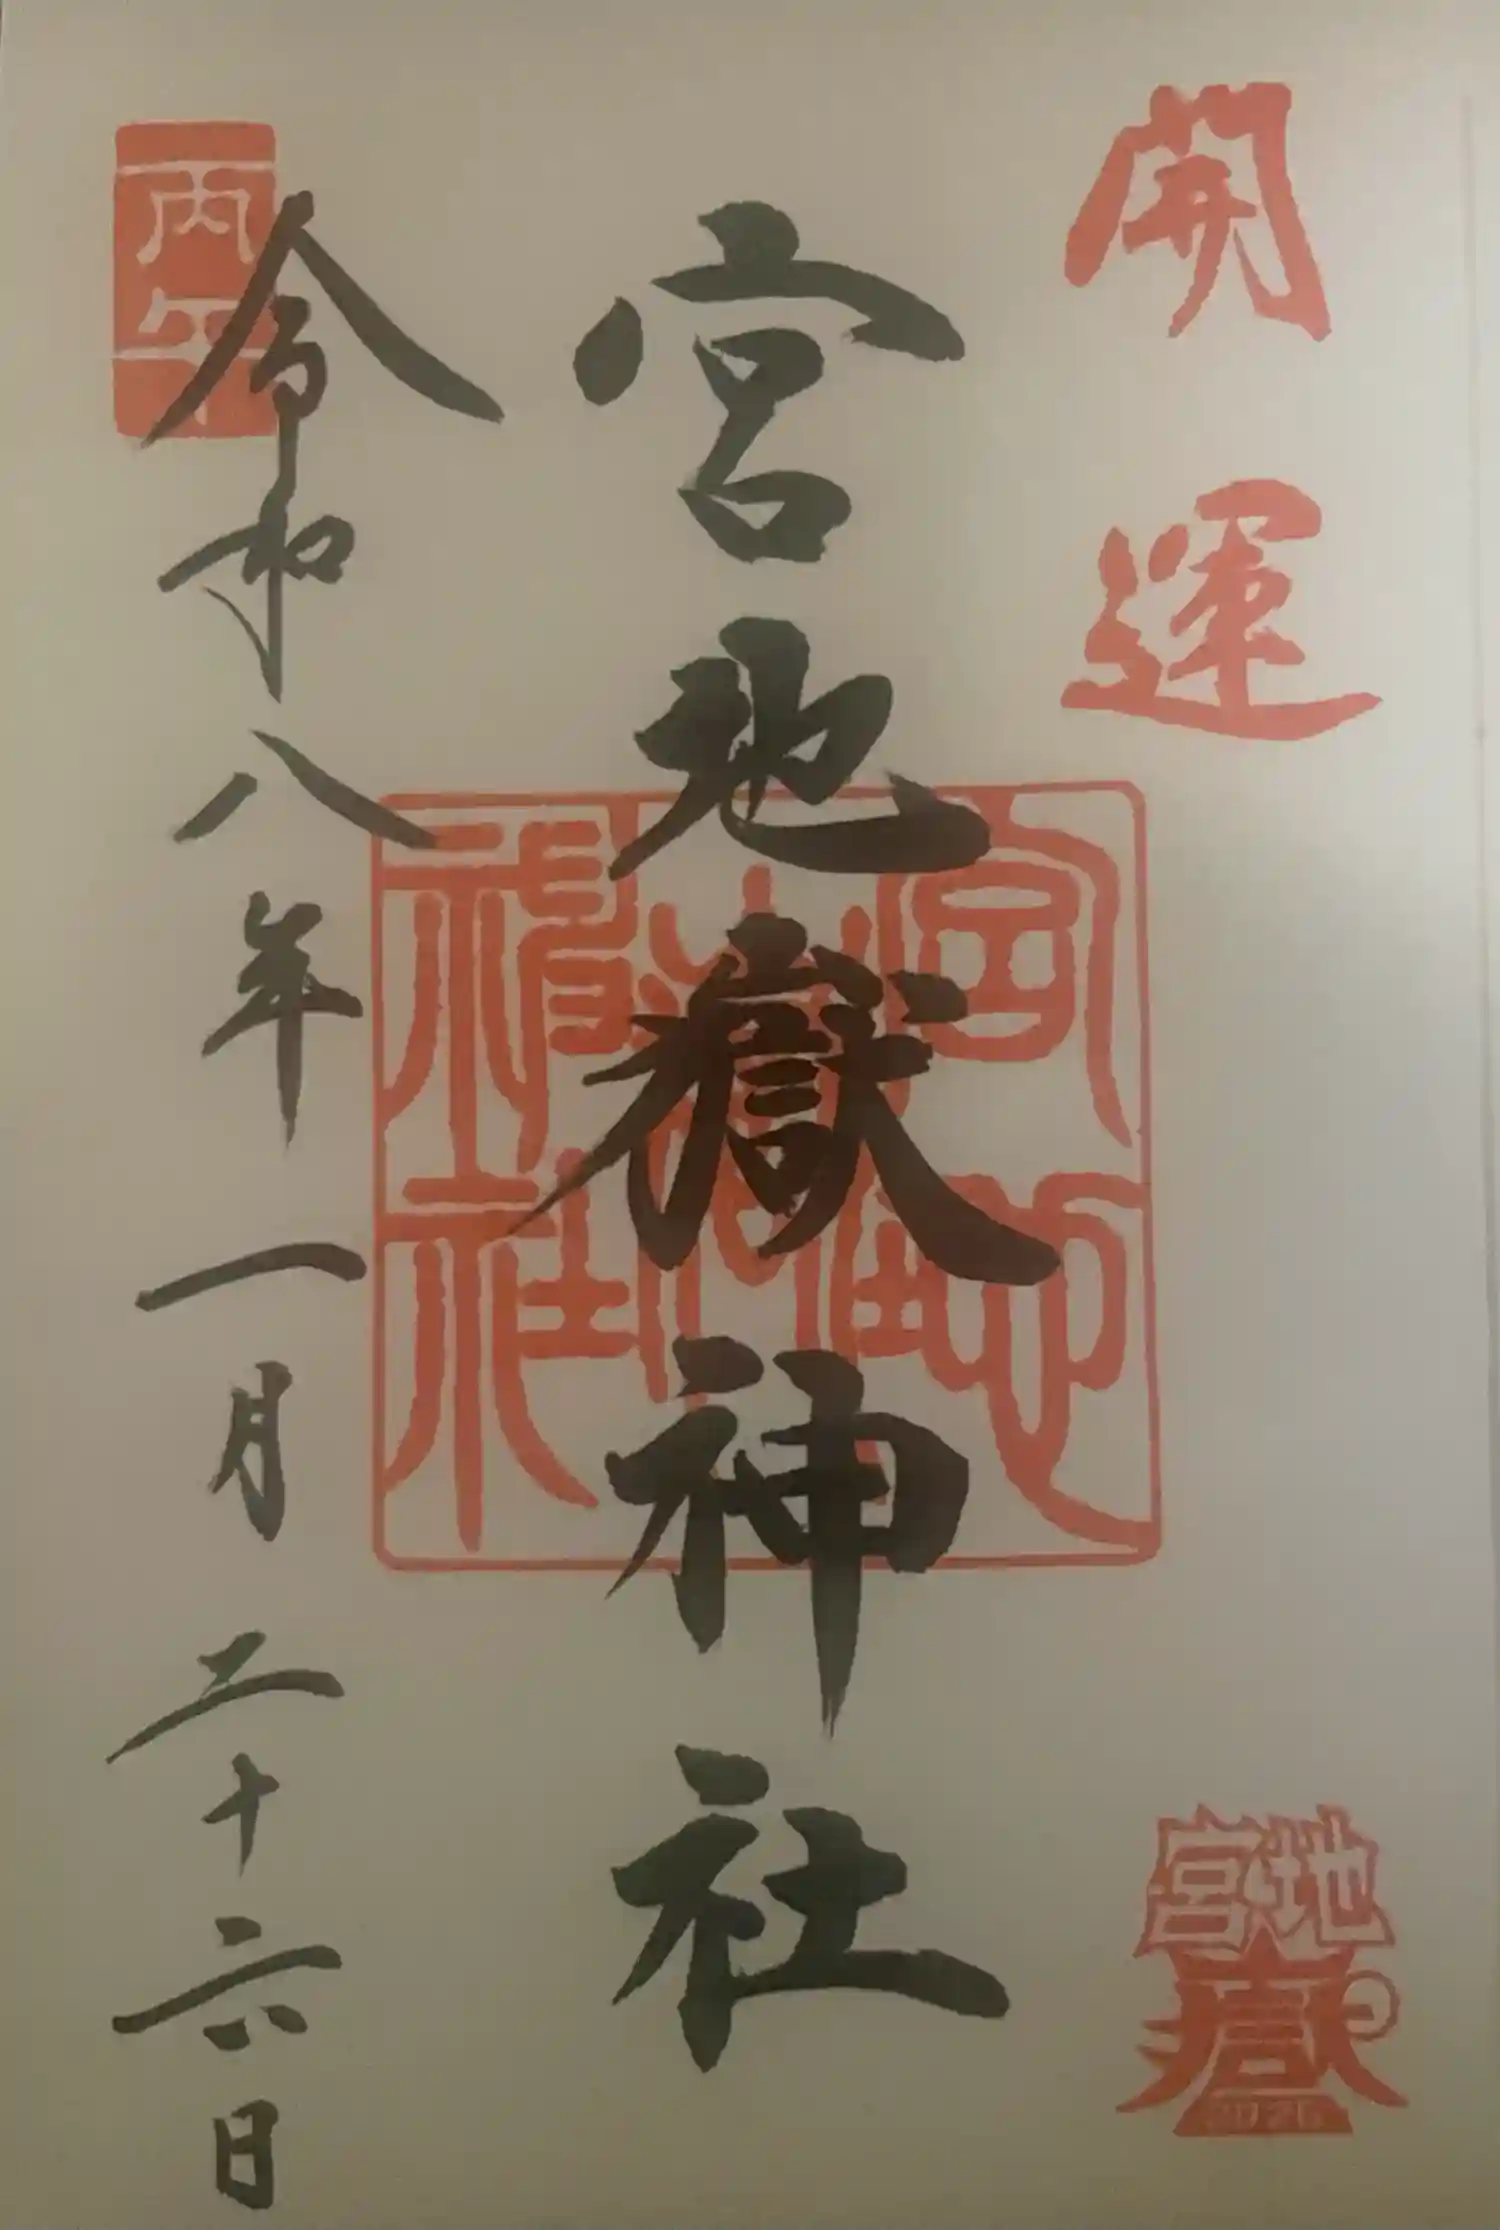 開運
宮地嶽
2026
宮地嶽神社
宮地嶽神社
丙午
令和八年一月二十六日